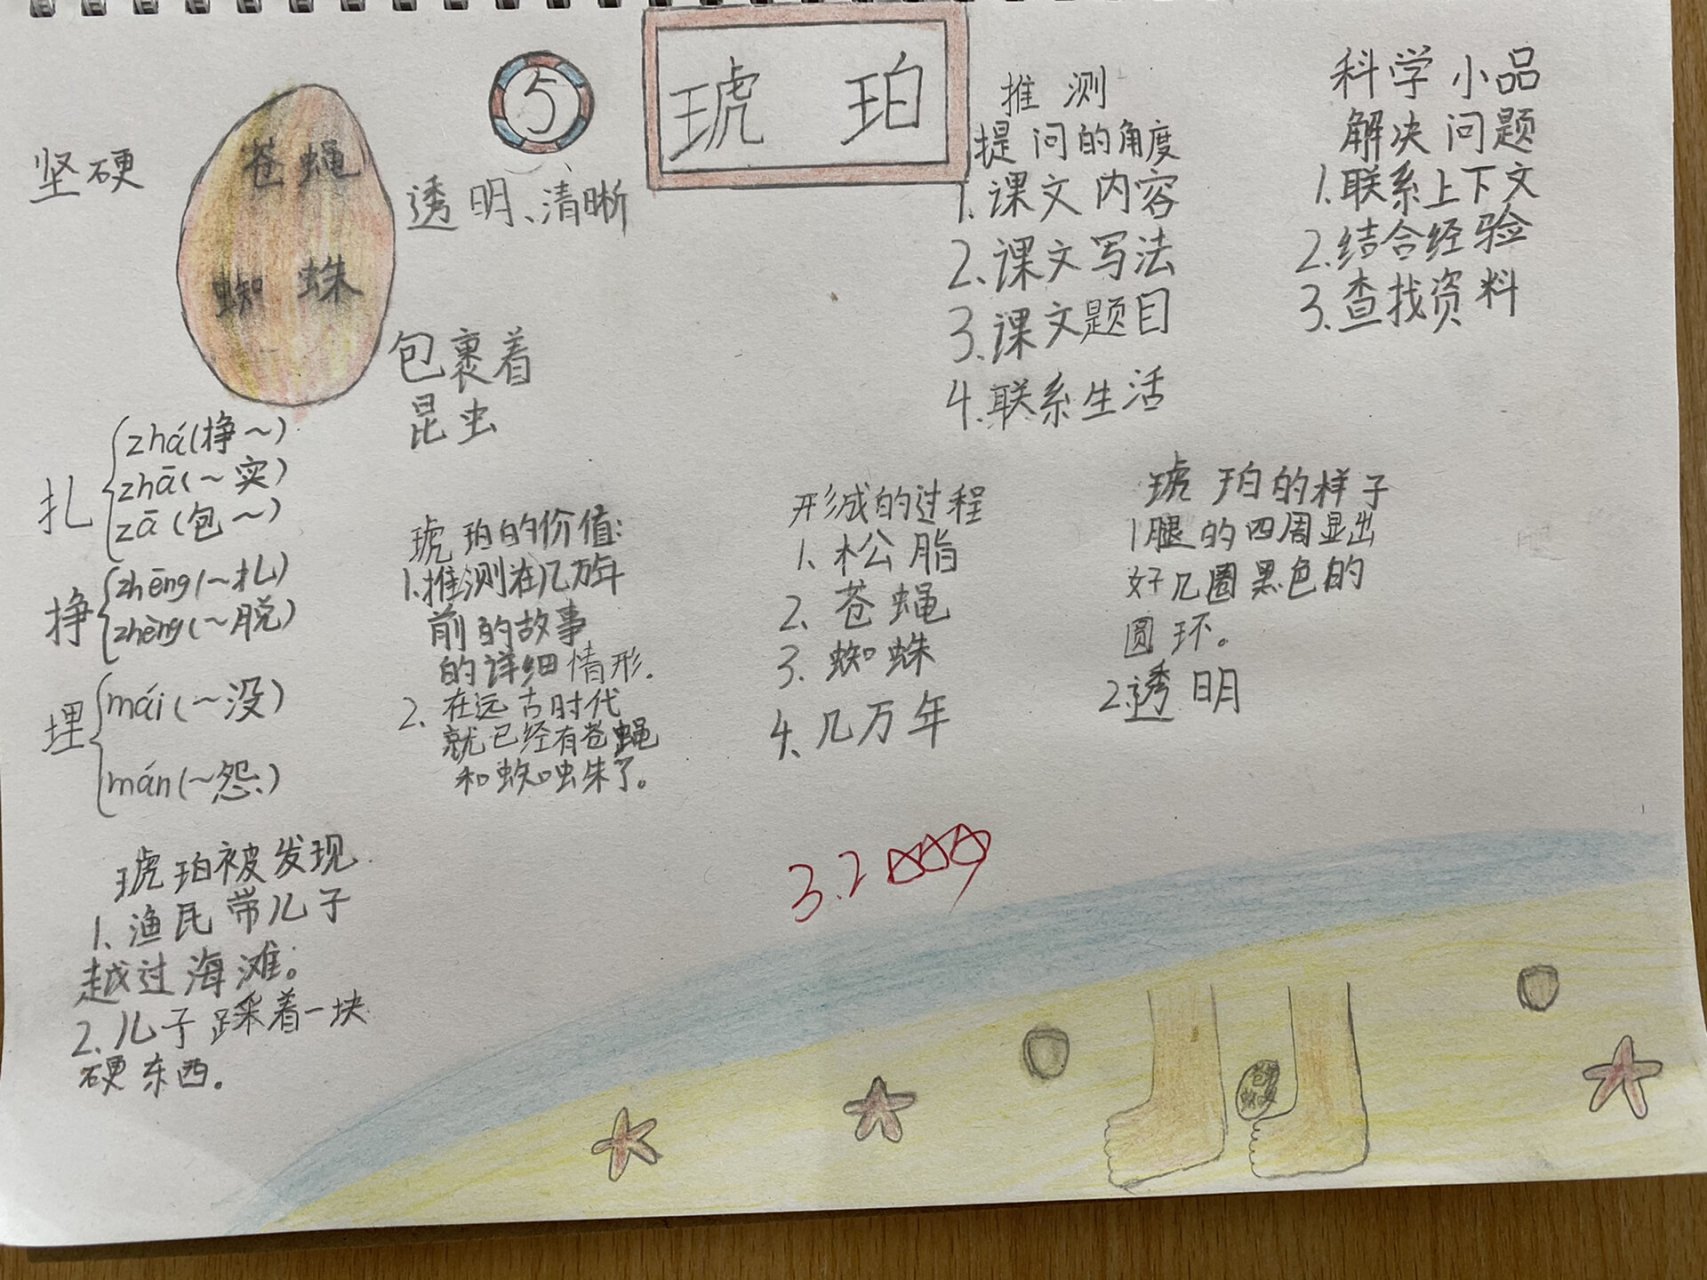 ⑤
琥珀
坚硬
苍蝇
蜘蛛
透明、清晰
包裹着
昆虫
推测
提问的角度
1.课文内容
2.课文写法
3.课文题目
4.联系生活
科学小品
解决问题
1.联系上下文
2.结合经验
3.查找资料
扎
zhá(挣~)
zhā(~实)
zā(包~)
挣
zhēng(~扎)
zhèng(~脱)
埋
mái(~没)
mán(~怨)
琥珀的价值:
1.推测在几万年
前的故事
的详细情形.
2.在远古时代
就已经有苍蝇
和蜘蛛了。
形成的过程
1.松脂
2.苍蝇
3.蜘蛛
4.几万年
琥珀的样子
1腿的四周显出
好几圈黑色的
圆环。
2.透明
琥珀被发现
1、渔民带儿子
越过海滩。
2.儿子踩着一块
硬东西。
3.2